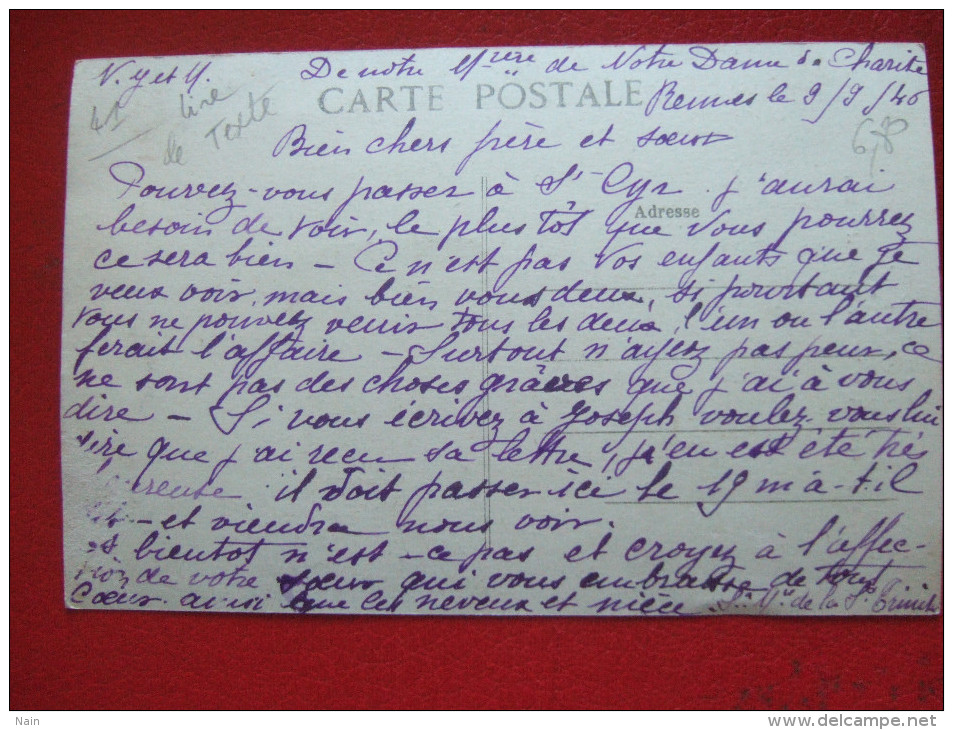 De notre Mère de Notre Dame de Charité
41
lire
de Texte
CARTE POSTALE
Rennes le 9/9/46
Bien chers frère et sœur
Pouvez-vous passer à St-Cyr j'aurai
Adresse
besoin de voir, le plus tôt que vous pourrez
ce sera bien - Ce n'est pas vos enfants que je
veux voir, mais bien vous deux, si pourtant
vous ne pouvez venir tous les deux, l'un ou l'autre
ferait l'affaire - Surtout n'ayez pas peur, ce
ne sont pas des choses graves que j'ai à vous
dire - Si vous écrivez à Joseph voulez vous lui
dire que j'ai reçu sa lettre, j'en est été très
il doit passer ici le 19 m'a-t-il
- et viendra nous voir.
bientot n'est-ce pas et croyez à l'affec-
tion de votre sœur qui vous embrasse de tout
Cœur ainsi que les neveux et nièce de la Ste Trinité
Nain
www.delcampe.net